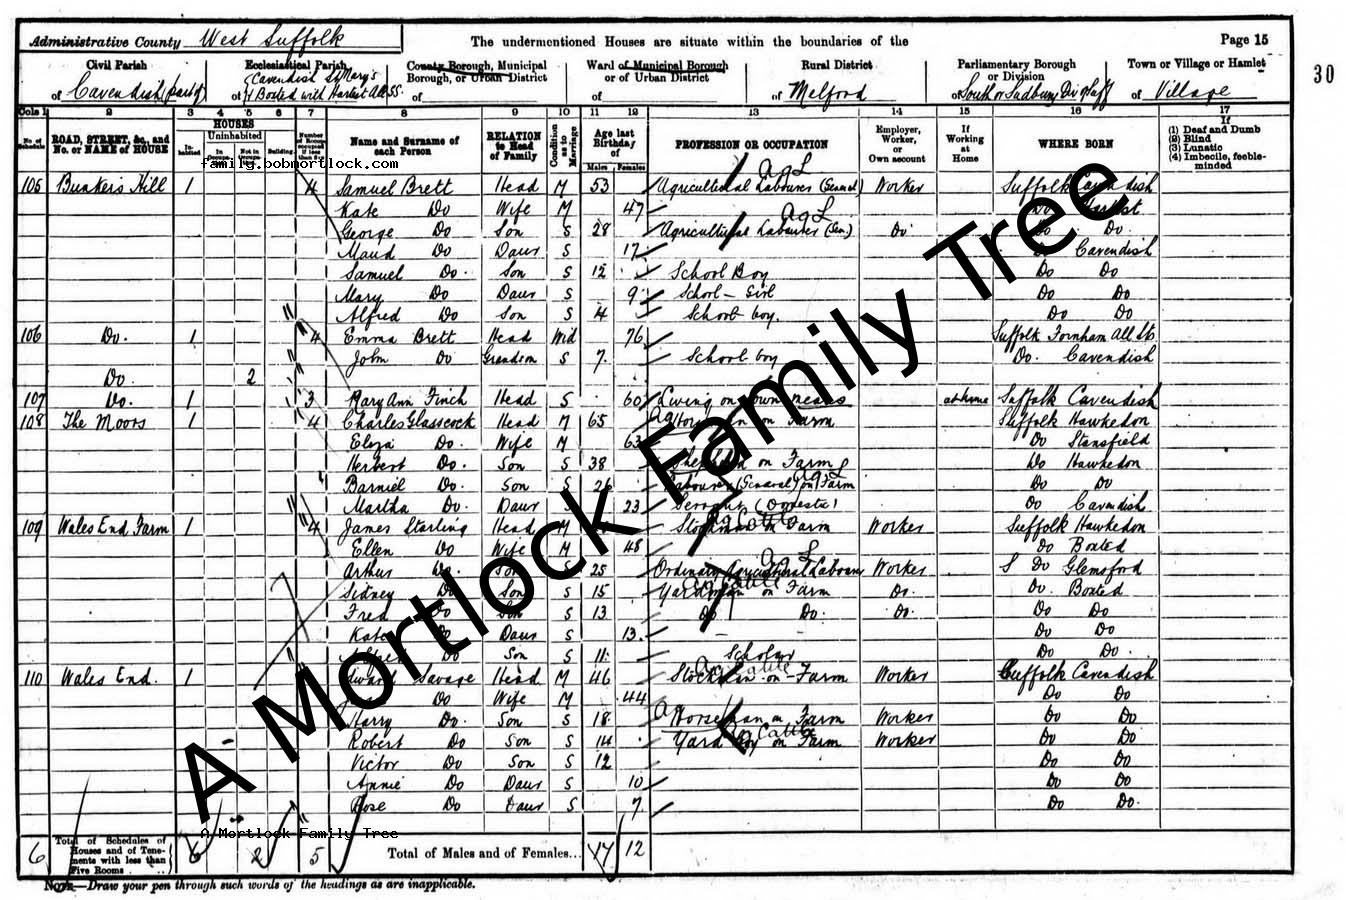 Administrative County West Suffolk
The undermentioned Houses are situate within the boundaries of the
Page 15
30
Civil Parish of Cavendish (part of)
Ecclesiastical Parish of Cavendish St Mary's & Boxted with Hartest All SS.
County Borough, Municipal Borough, or Urban District of
Ward of Municipal Borough or of Urban District of
Rural District of Melford
Parliamentary Borough or Division of South or Sudbury Div
Town or Village or Hamlet of Village
Cols 1 2 3 4 5 6 7 8 9 10 11 12 13 14 15 16 17
No. of Schedule
ROAD, STREET, &c., and No. or NAME of HOUSE
HOUSES
Inhabited
Uninhabited
Building
Name and Surname of each Person
RELATION to Head of Family
Condition as to Marriage
Age last Birthday of
Males Females
PROFESSION OR OCCUPATION
Employer, Worker, or Own account
If Working at Home
WHERE BORN
If (1) Deaf and Dumb (2) Blind (3) Lunatic (4) Imbecile, feeble-minded
family.bobmortlock.com
105 Bunkers Hill 1 4 Samuel Brett Head M 53 Agricultural Labourer (General) Worker Suffolk Cavendish
Ag L
Kate Do Wife M 47 Do Hartest
Ag L
George Do Son S 28 Agricultural Labourer (Gen.) Do Do Do
Maud Do Daur S 17 Do Cavendish
Samuel Do. Son S 12 School Boy Do Do
Mary Do Daur S 9 School-Girl Do Do
Alfred Do Son S 4 School boy. Do Do
106 Do. 1 4 Emma Brett Head Wid 76 Suffolk Fornham All Sts
John Do Grandson S 7. School boy Do. Cavendish
Do. 2
107 Do. 1 3 Mary Ann Finch Head S 60 Living on own means at home Suffolk Cavendish
108 The Moors 1 4 Charles Glasscock Head M 65 on Farm Suffolk Hawkedon
Eliza Do. Wife M 63 Do Stansfield
Herbert Do. Son S 38 Shepherd on Farm Do Hawkedon
Do. Son S 26 Labourer (General) on Farm Do Do
Martha Do. Daur S 23 Servant (Domestic) Do Cavendish
109 Wales End Farm 1 4 James Starling Head M Stockman on Farm Worker Suffolk Hawkedon
Ellen Do Wife M 48 Do Boxted
Arthur Do. Son S 25 Ordinary Agricultural Labourer Worker S Do Glemsford
Sidney Do Son S 15 Yardman on Farm Do. Do. Boxted
Fred Do Son S 13 Do Do. Do. Do Do
Kate Do Daur S 13. Do Do
Do Son S 11. Scholar Do Do.
110 Wales End. 1 Edward Savage Head M 46 Stockman on Farm Worker Suffolk Cavendish
Do Wife M 44 Do Do
Harry Do. Son S 18. Horseman on Farm Worker Do Do
Robert Do Son S 14. Yard Boy on Farm Worker Do Do
Victor Do Son S 12 Do Do
Annie Do Daur S 10 Do Do
Rose Do Daur S 7. Do Do.
6 Total of Schedules of Houses and of Tenements with less than Five Rooms 6 2 5 Total of Males and of Females... 17 12
NOTE.—Draw your pen through such words of the headings as are inapplicable.
A Mortlock Family Tree
A Mortlock Family Tree